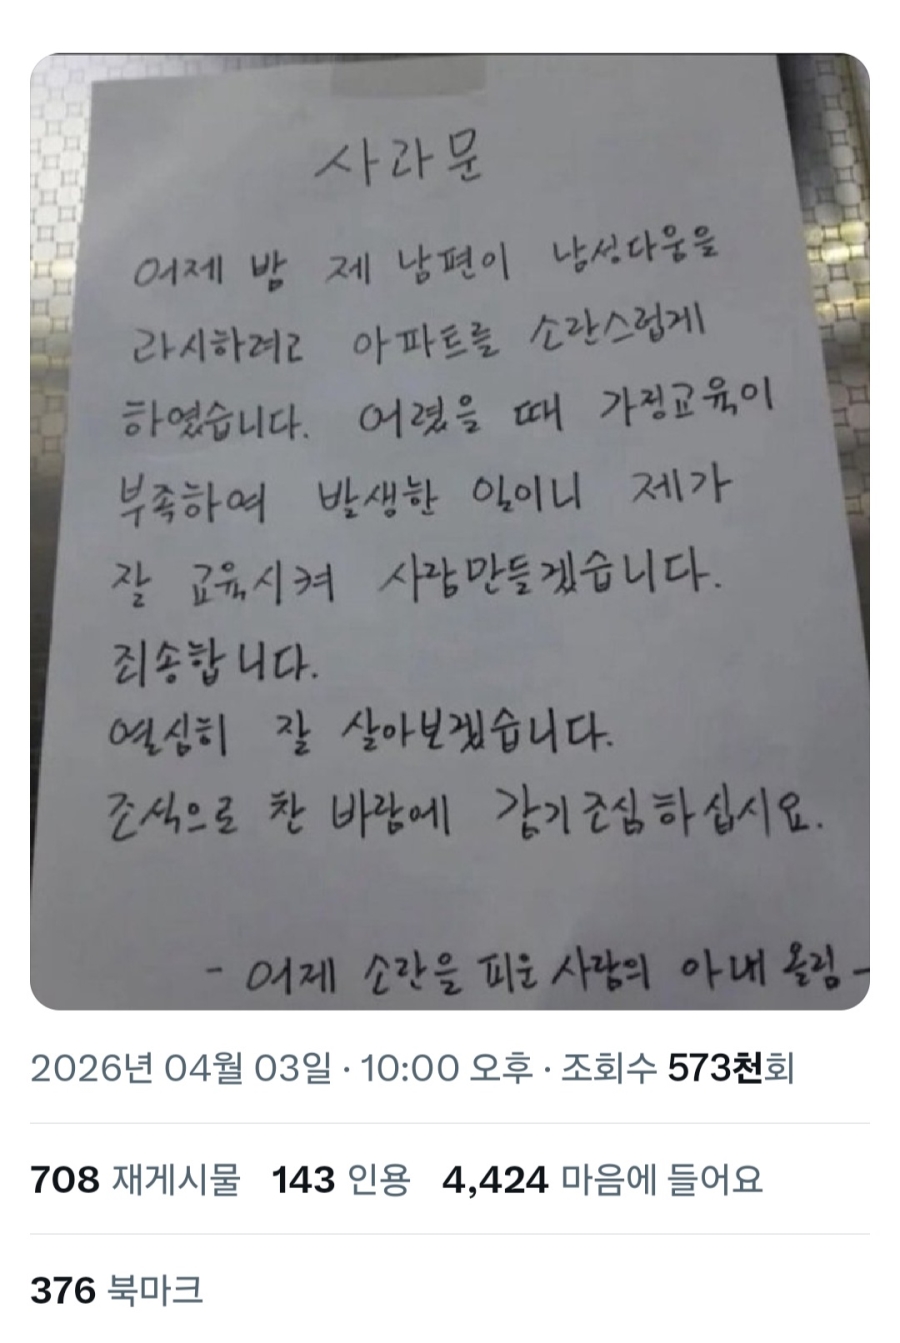 사과문
어제 밤 제 남편이 남성다움을
과시하려고 아파트를 소란스럽게
하였습니다. 어렸을 때 가정교육이
부족하여 발생한 일이니 제가
잘 교육시켜 사람만들겠습니다.
죄송합니다.
열심히 잘 살아보겠습니다.
조석으로 찬 바람에 감기 조심하십시요.
- 어제 소란을 피운 사람의 아내 올림 -
2026년 04월 03일 · 10:00 오후 · 조회수 573천회
708 재게시물 143 인용 4,424 마음에 들어요
376 북마크